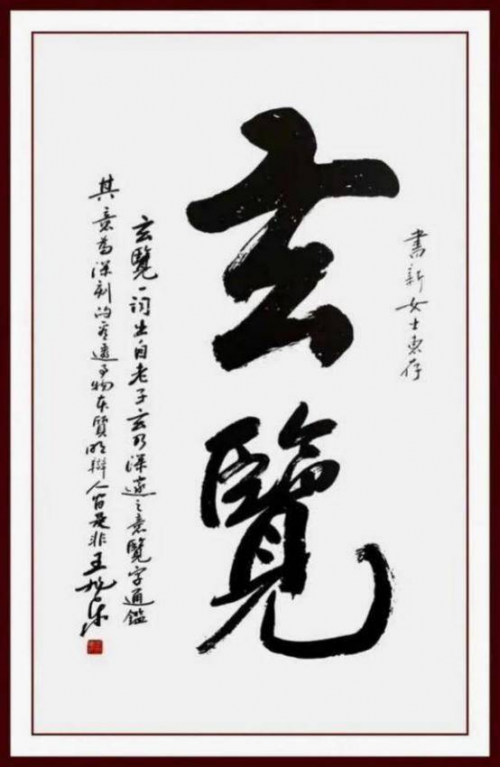 玄覽
書新女士惠存
玄覽一詞出自老子玄乃深遠之意覽字通鑑
其意為深刻的看透事物本質明辯人間是非王